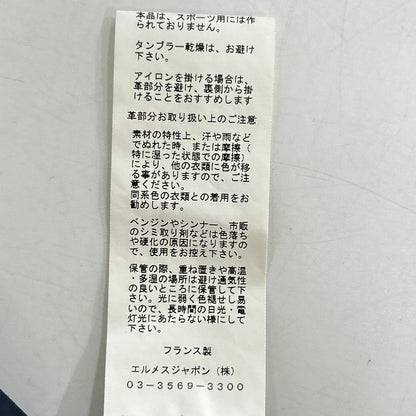 本品は、スポーツ用には作
られておりません。
タンブラー乾燥は、お避け
下さい。
アイロンを掛ける場合は、
革部分を避け、裏側から掛
けることをおすすめします
革部分お取り扱い上のご注意
素材の特性上、汗や雨など
でぬれた時、または摩擦(
特に湿った状態での摩擦)
により、他の衣類に色が移
る事がありますので、ご注
意ください。
同系色の衣類との着用をお
勧めします。
ベンジンやシンナー、市販
のシミ取り剤などは色落ち
や硬化の原因になりますの
で、使用をお控え下さい。
保管の際、重ね置きや高温
・多湿の場所は避け通気性
の良いところに保管して下
さい。光に弱く色褪せし易
いので、長時間の日光・電
灯光にあたらない様にして
下さい。
フランス製
エルメスジャポン(株)
03-3569-3300